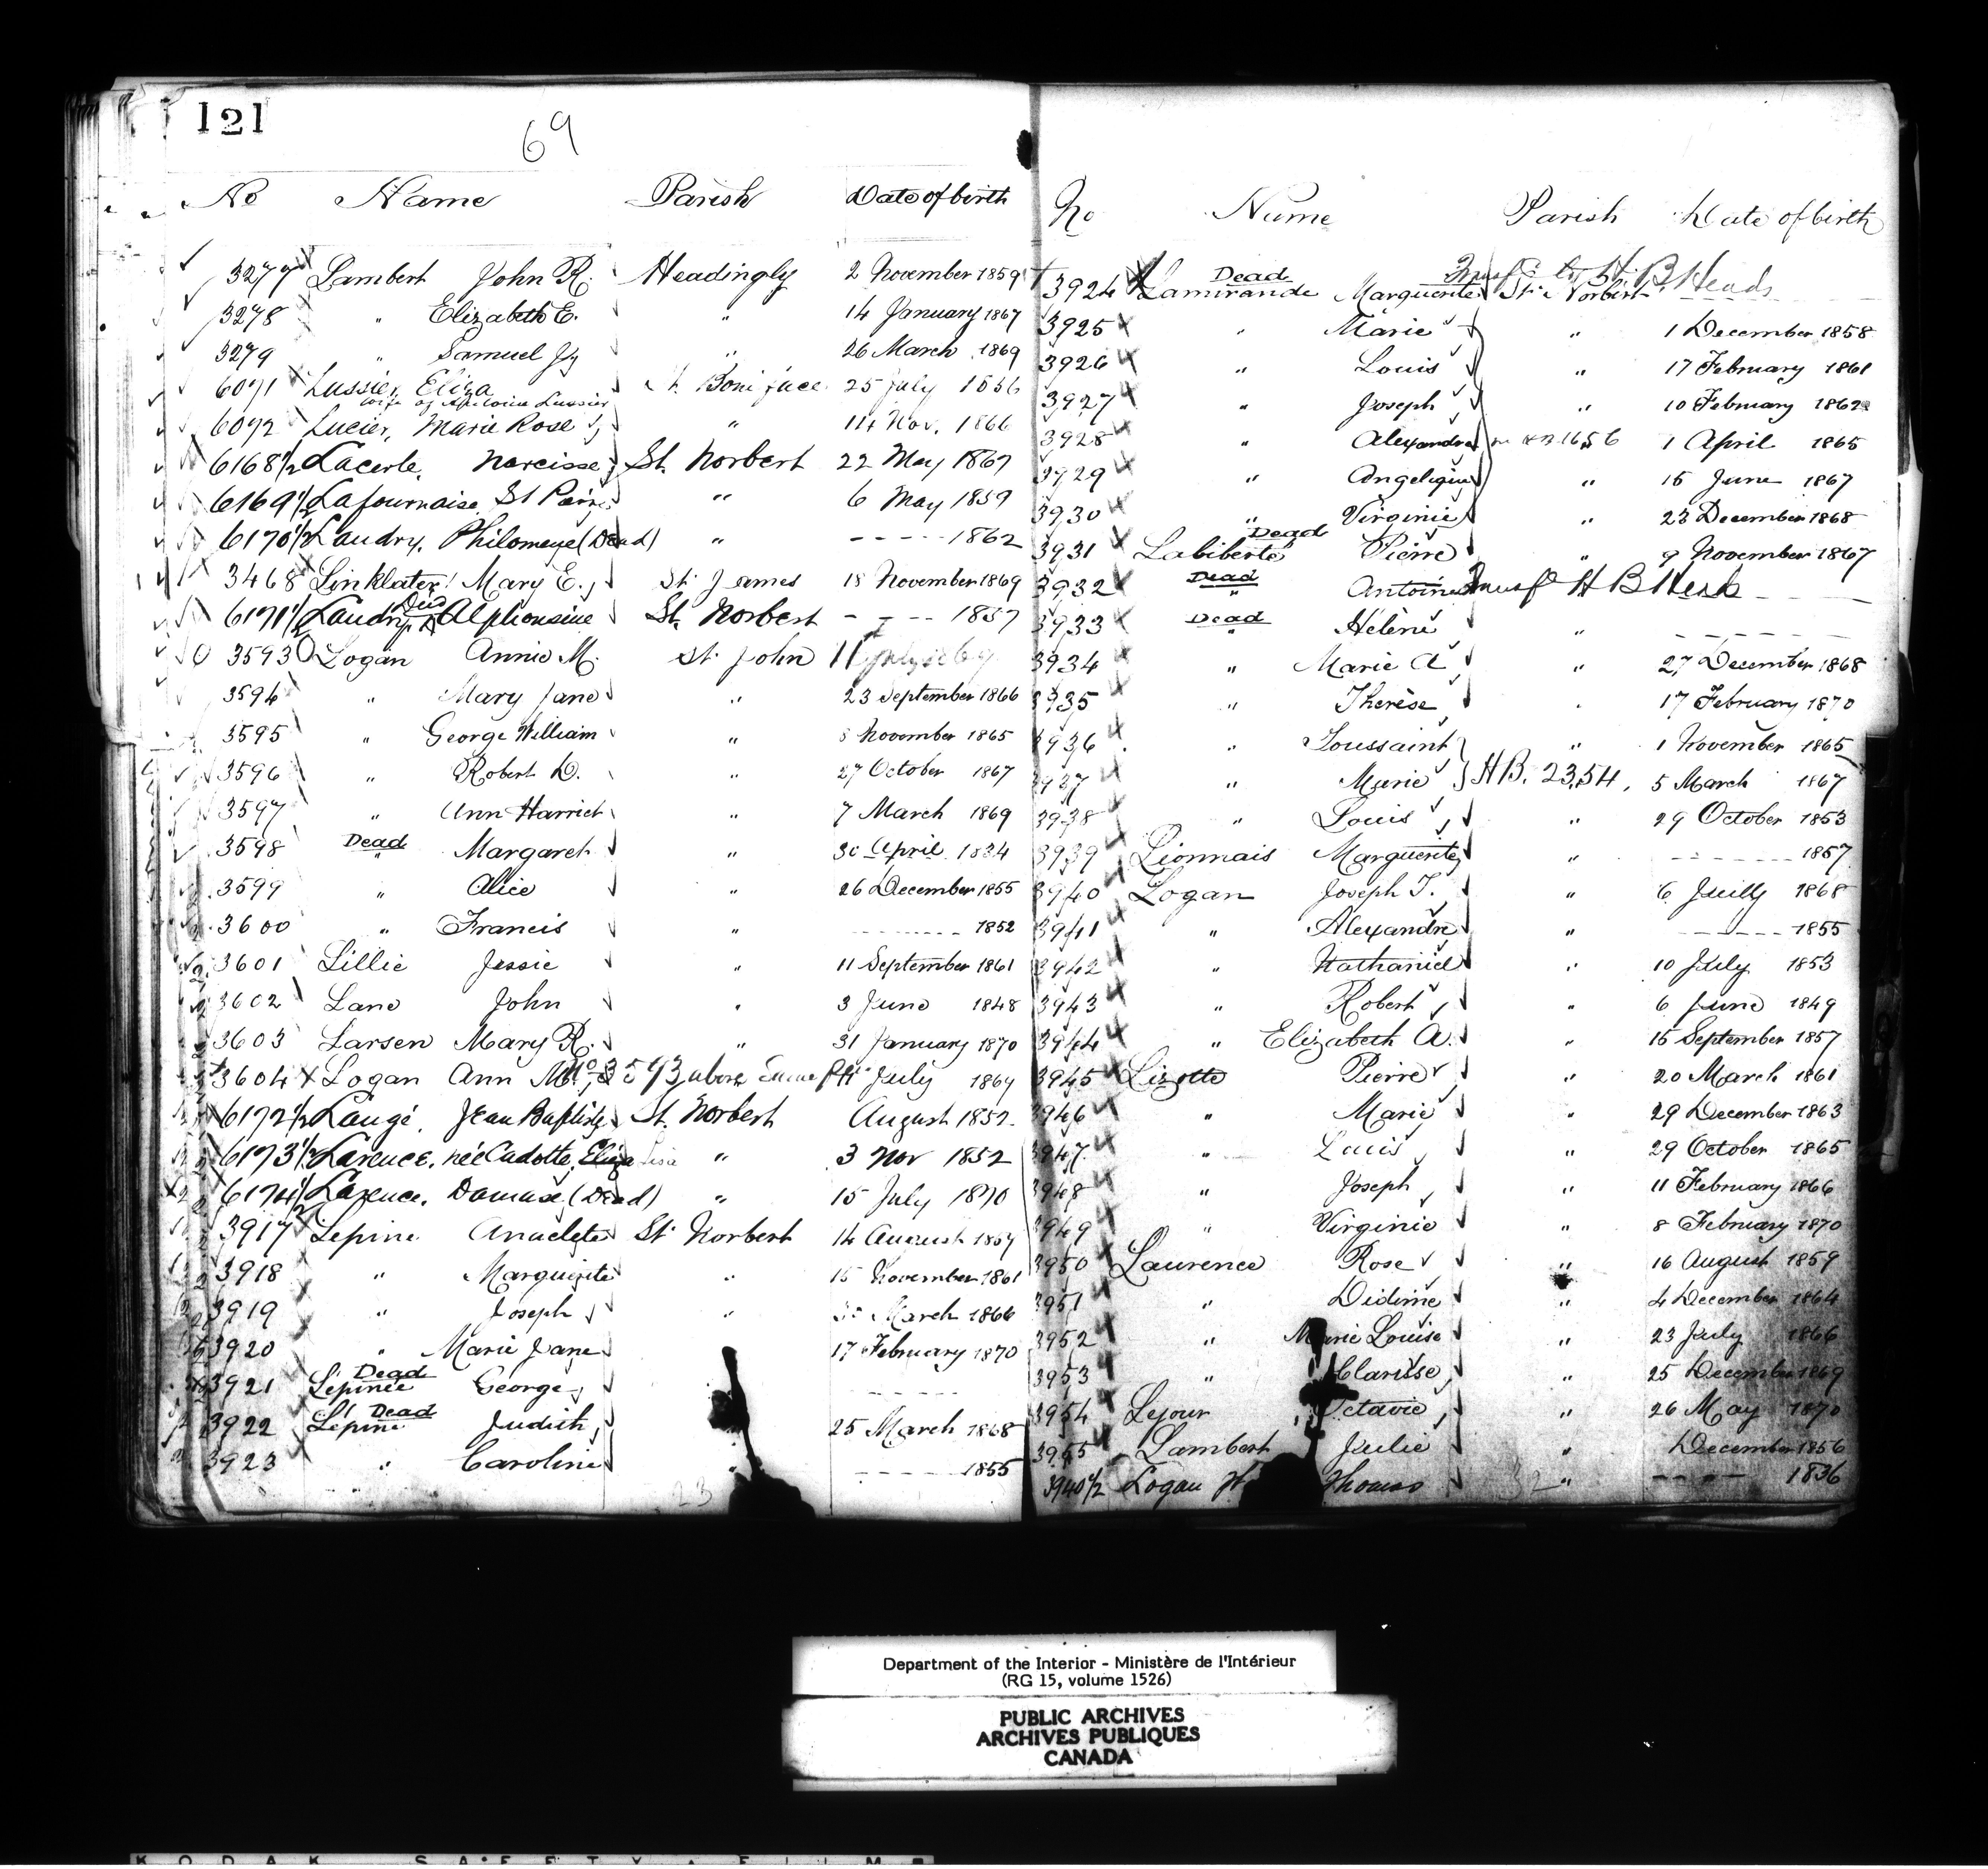 121
69
No Name Parish Date of birth
3277 Lambert John R. Headingly 2 November 1859
3278 " Elizabeth E. " 14 January 1867
3279 " Samuel " 26 March 1869
6071 Lussier, Eliza St. Boniface 25 July 1856
wife of Lussier
6072 Lucier, Marie Rose " 14 Nov. 1866
6168 1/2 Lacerte, Narcisse St. Norbert 22 May 1867
6169 1/2 Lafournaise, St " 6 May 1859
6170 1/2 Laudry, Philomene (Dead) " - - - - 1862
3468 Linklater Mary E. St. James 18 November 1869
Dead
6171 1/2 Laudry Alphonsine St. Norbert - - - 1857
3593 Logan Annie M. St. John 11 July 1869
3594 " Mary Jane " 23 September 1866
3595 " George William " 8 November 1865
3596 " Robert D. " 27 October 1867
3597 " Ann Harriet " 7 March 1869
3598 Dead " Margaret " 30 April 1834
3599 " Alice " 26 December 1855
3600 " Francis " - - - - 1852
3601 Lillie Jessie " 11 September 1861
3602 Lane John " 3 June 1848
3603 Larsen Mary R. " 31 January 1870
3604 Logan Ann M. No. 3593 above same July 1869
6172 1/2 Laugé, Jean Baptiste St. Norbert August 1852
6173 1/2 Larence, née Cadotte, Eliza " 3 Nov 1852
6174 1/2 Larence, Damase (Dead) " 15 July 1870
3917 Lepine Anaclete St. Norbert 14 August 1859
3918 " Marguerite " 15 November 1861
3919 " Joseph " March 1866
3920 " Marie Jane " 17 February 1870
Dead
3921 Lépine George - - - -
Dead
3922 Lépine Judith " 25 March 1868
3923 " Caroline " - - - - 1855
23
No Name Parish Date of birth
Dead Transf. to H.B. Heads
3924 Lamirande Marguerite St. Norbert
3925 " Marie " 1 December 1858
3926 " Louis " 17 February 1861
3927 " Joseph " 10 February 1862
3928 " Alexandre 1656 1 April 1865
3929 " Angelique " 15 June 1867
3930 " Virginie " 23 December 1868
Dead
3931 Laliberté Pierre " 9 November 1867
3932 Dead " Antoine Transf. H B Heads - - - -
3933 Dead " Hélène " - - - -
3934 " Marie A " 27 December 1868
3935 " Therèse " 17 February 1870
3936 " Toussaint " 1 November 1865
3937 " Marie H.B. 2354, 5 March 1867
3938 " Louis " 29 October 1853
3939 Lionnais Marguerite " - - - - 1857
3940 Logan Joseph T. " 6 Juilly 1868
3941 " Alexandre " - - - - 1855
3942 " Nathaniel " 10 July 1853
3943 " Robert " 6 June 1849
3944 " Elizabeth A. " 15 September 1857
3945 Lizotte Pierre " 20 March 1861
3946 " Marie " 29 December 1863
3947 " Louis " 29 October 1865
3948 " Joseph " 11 February 1866
3949 " Virginie " 8 February 1870
3950 Laurence Rose " 16 August 1859
3951 " Didime " 4 December 1864
3952 " Marie Louise " 23 July 1866
3953 " Clarisse " 25 December 1869
3954 Lejour Octavie " 26 May 1870
3955 Lambert Julie " December 1856
3940 1/2 Logan Thomas 32 " - - - - 1836
Department of the Interior - Ministère de l'Intérieur
(RG 15, volume 1526)
PUBLIC ARCHIVES
ARCHIVES PUBLIQUES
CANADA
KODAK SAFETY FILM